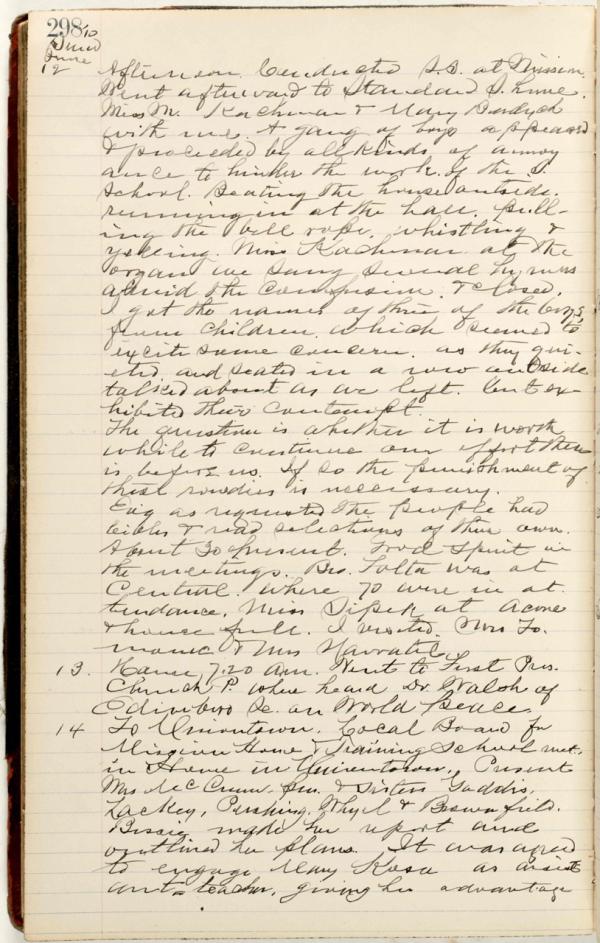 298
1910
Sund
June
12
Afternoon. Conducted S.S. at Mission.
Went afterward to Standard S. home.
Miss M. Kachman & Mary
with me. A gang of boys appeared
& proceeded by all kinds of annoy
ance to hinder the work of the S.
School. Beating the house outside.
running in at the hall. pull-
ing the bell rope. whistling &
yelling. Miss Kachman at the
organ we sang several hymns
amid the confusion. & closed.
I got the names of three of the boys,
from children. which seemed to
excite some concern. as they qui-
eted and seated in a row outside
talked about as we left. but ex-
hibited their contempt.
The question is whether it is worth
while to continue our effort there
is before us. If so the punishment of
these rowdies is necessary.
Evig as requested the people had
bibles & read selections of their own.
About 30 present. Good Spirit in
the meetings. Bro. Tolta was at
Central. where 70 were in at
tendance. Miss Sipek at Acme
& house full. I visited. Mrs
& Mrs Navratil.
13. Home 7.20 am. Went to First Pres.
Church P. where heard Dr. Walsh of
Edinboro Sc. on World Peace.
14 To Uniontown. Local Board for
Mission Home & Training School met.
in Home in Uniontown. Present
Mrs McCrum. Sen. & Sisters Gaddis,
Lackey, Pershing, Whyel & Brownfield.
Bessie made her report and
outlined her plans. It was agreed
to engage Mary Kosa as assist
ant teacher, giving her advantage